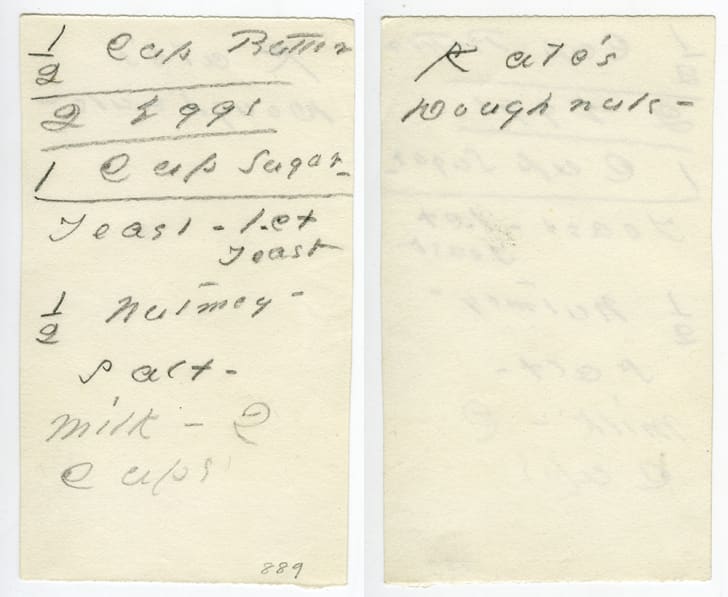 1/2 Cup Butter
2 Eggs
1 Cup Sugar-
Yeast - 1. et
Yeast
1/2 nutmeg -
Salt -
milk - 2
Cups
889
Kate's
Doughnuts -